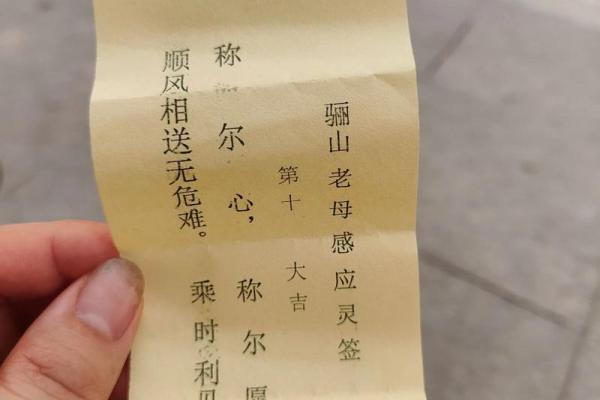 骊山老母感应灵签
第十 大吉
称尔心，称尔愿
顺风相送无危难。乘时利